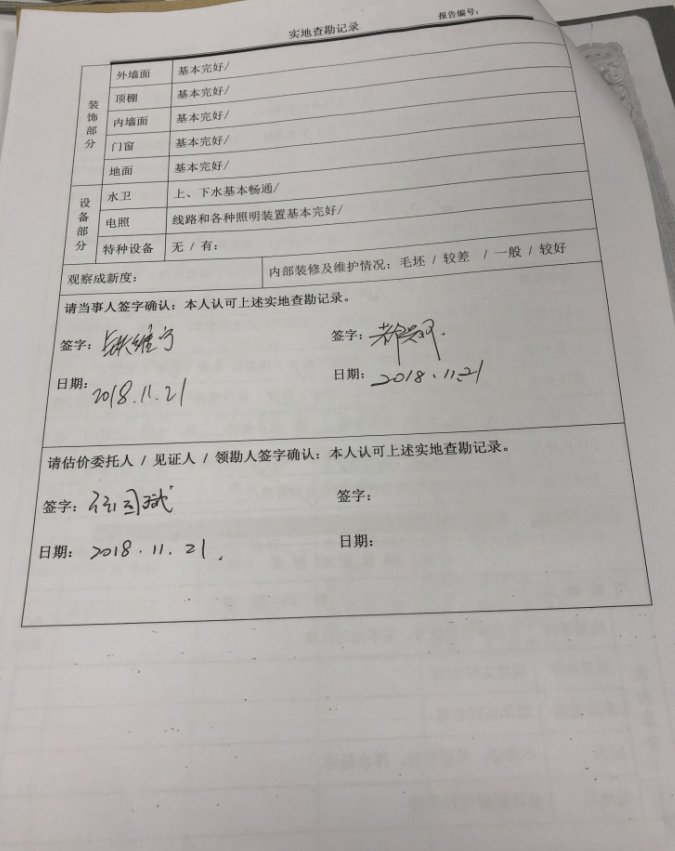 报告编号：
实地查勘记录
装饰部分
外墙面 基本完好/
顶棚 基本完好/
内墙面 基本完好/
门窗 基本完好/
地面 基本完好/
设备部分
水卫 上、下水基本畅通/
电照 线路和各种照明装置基本完好/
特种设备 无 / 有：
观察成新度： 内部装修及维护情况：毛坯 / 较差 / 一般 / 较好
请当事人签字确认：本人认可上述实地查勘记录。
签字： 签字：
日期：2018.11.21 日期：2018.11.21
请估价委托人 / 见证人 / 领勘人签字确认：本人认可上述实地查勘记录。
签字： 签字：
日期：2018.11.21. 日期：